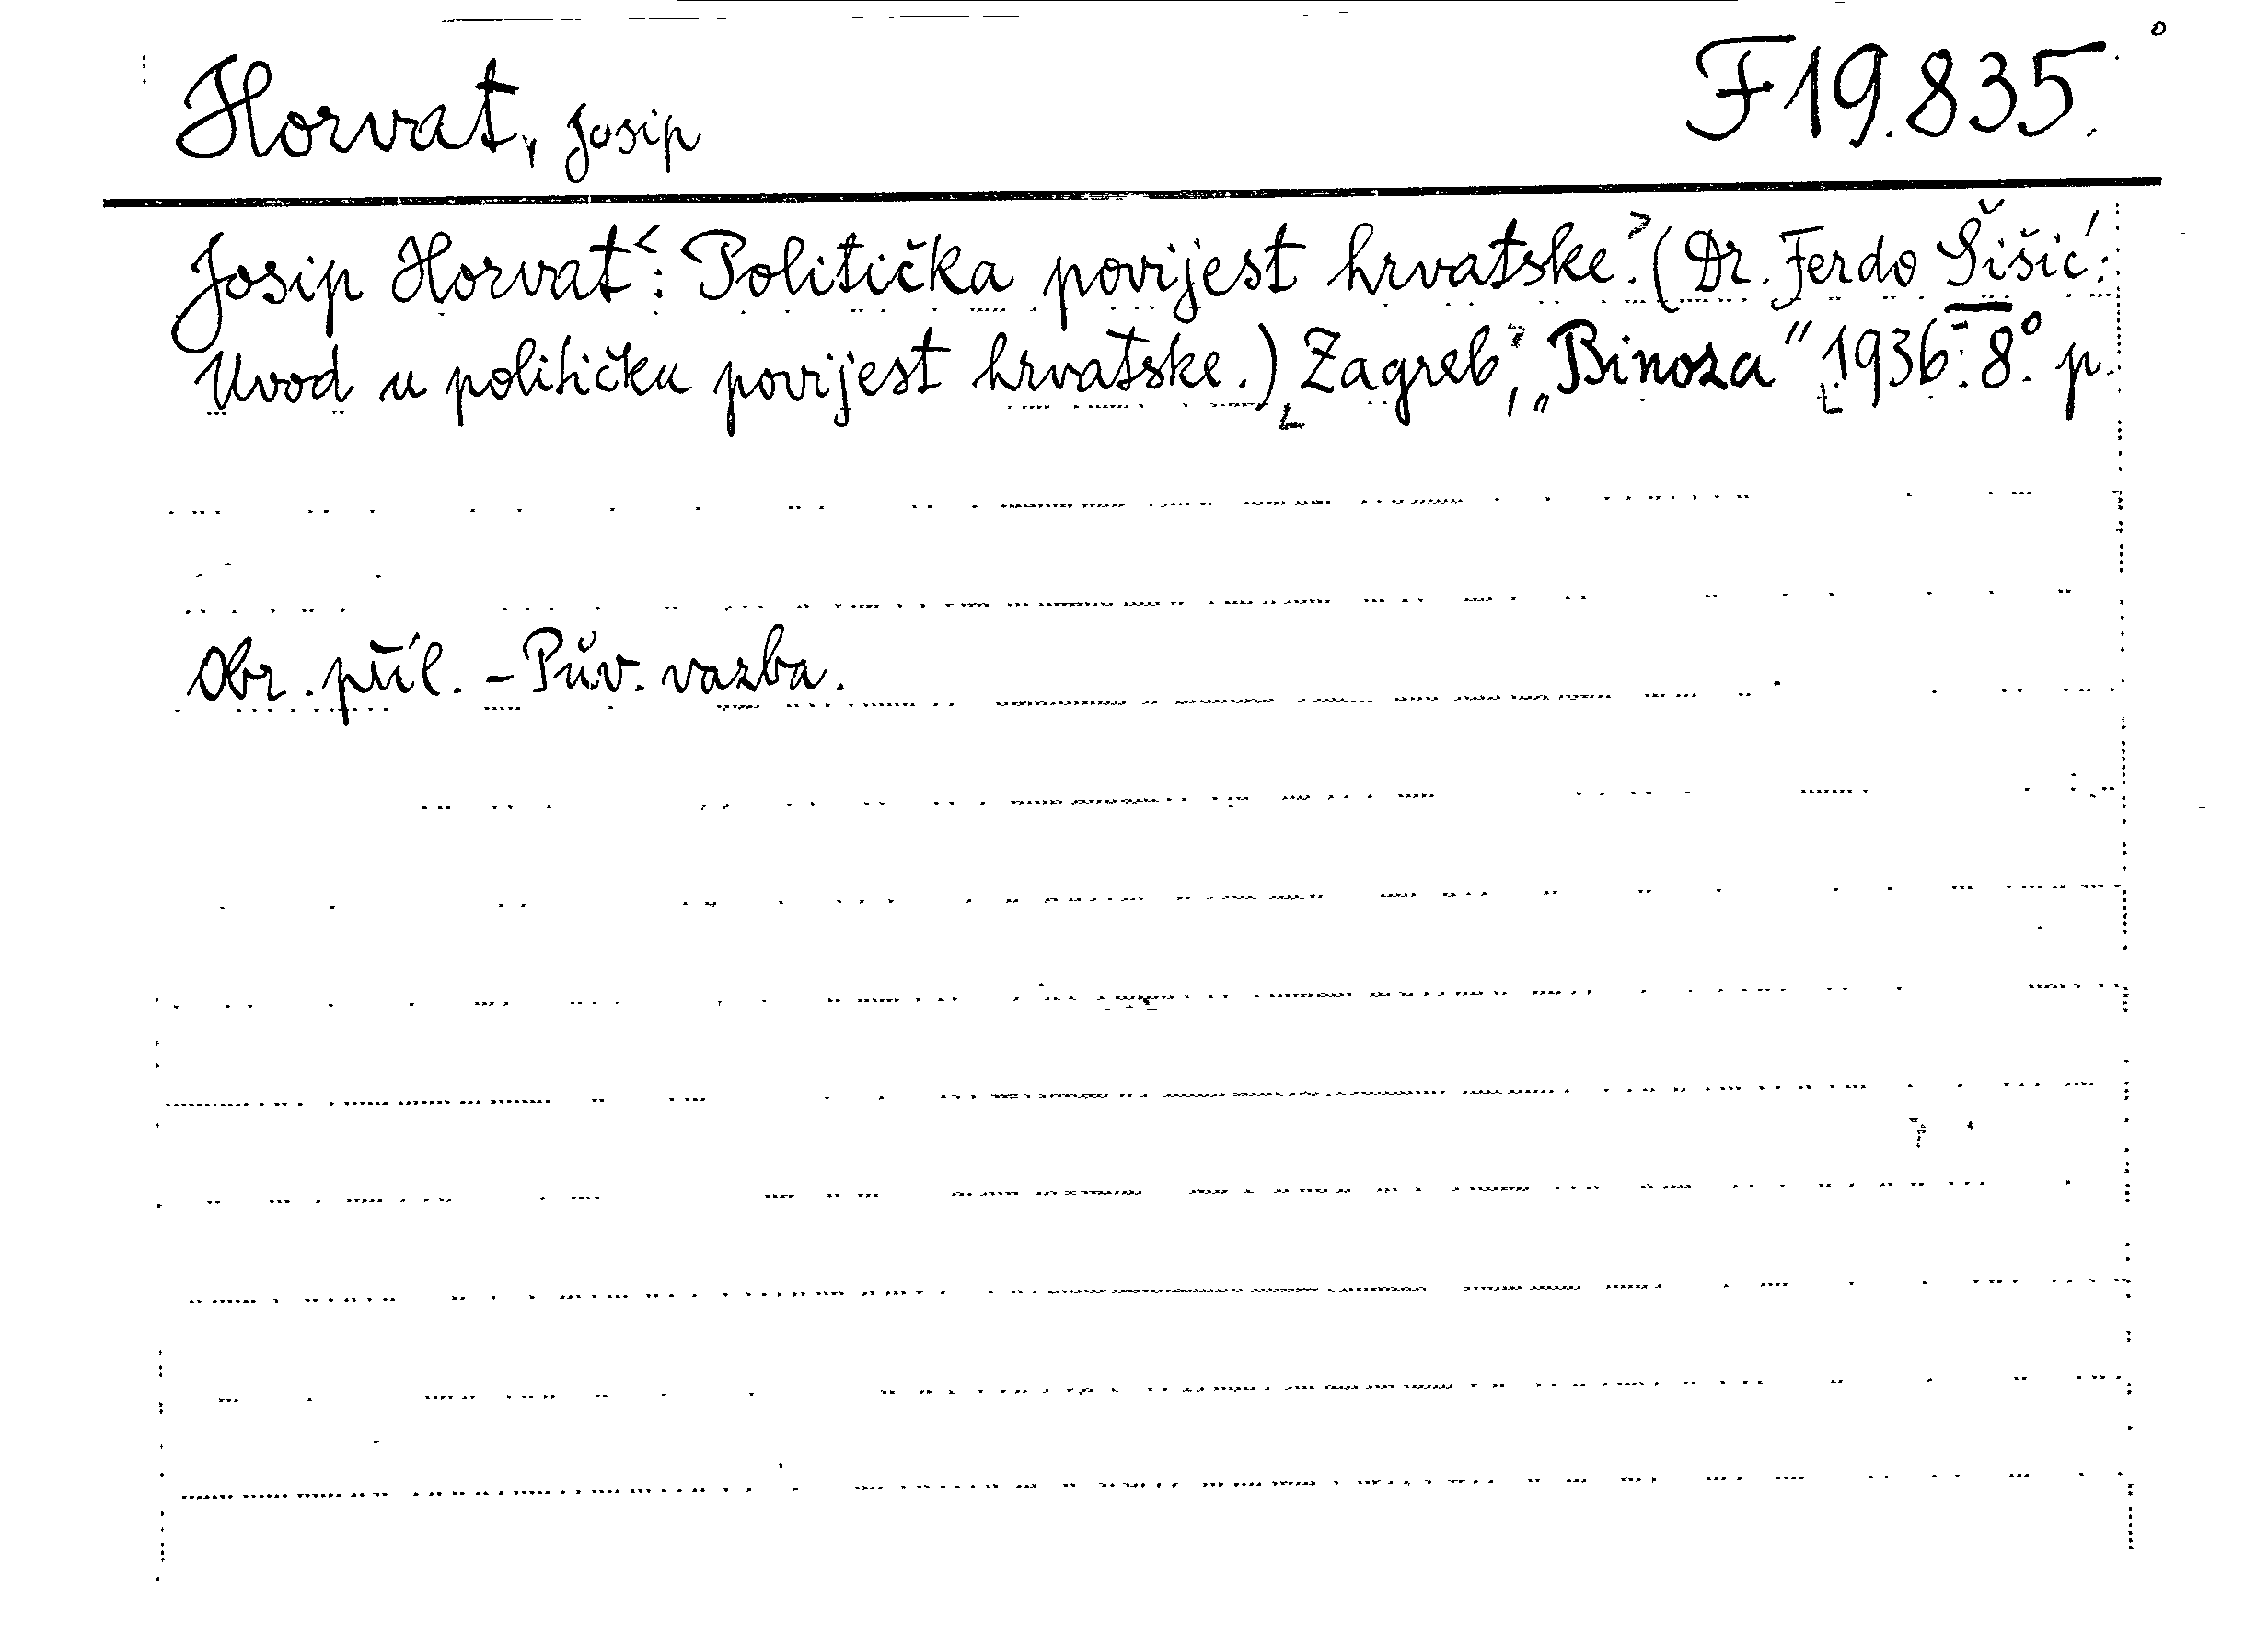 Horvat, Josip F 19.835.
Josip Horvat<: Politička povijest hrvatske.> (Dr. Ferdo Šišić:
Uvod u političku povijest hrvatske.) Zagreb, „Binoza" 1936. - 8° p.
Obr. příl. - Pův. vazba.